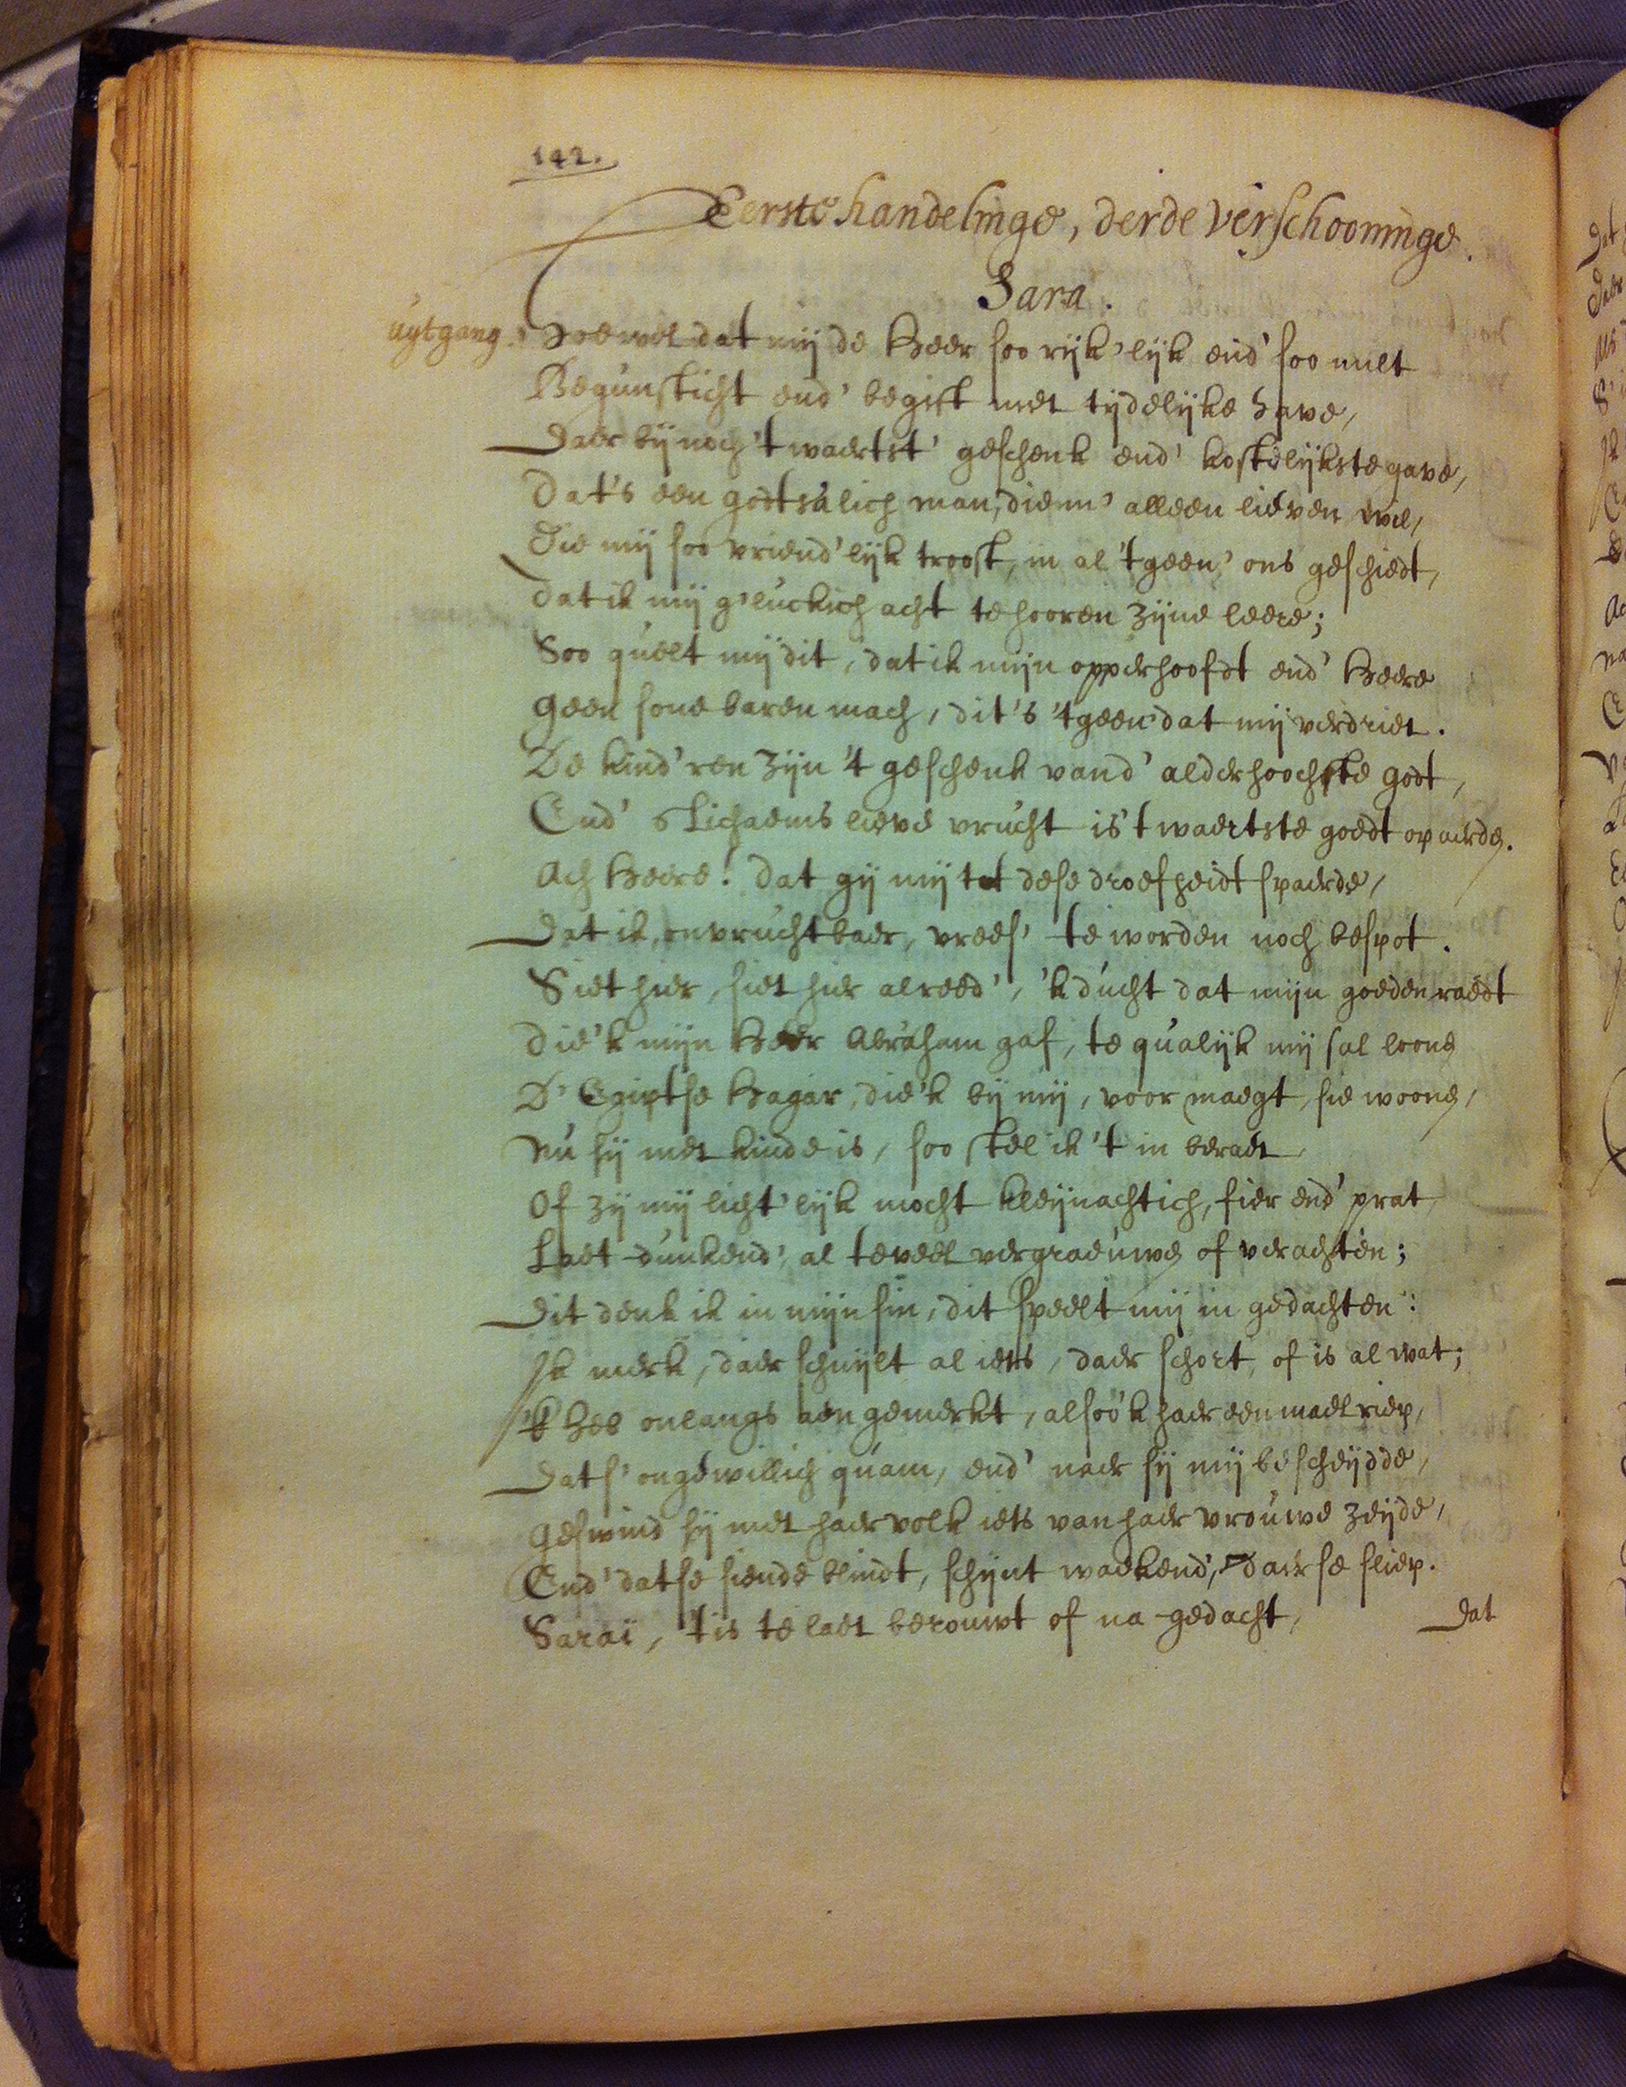 142.
Eerste handelinge, derde verschooninge.
Sara.
uytgang. Hoewel dat mij de Heer soo rijk'lijk end' soo milt
Begunsticht end' begift met tijdelijke have,
Daer bij noch 't waertst' geschenk end' kostelijkste gave,
Dat's een godtsalich man, diem' alleen lieven wil,
Die mij soo vriend'lijk troost, in al 't geen' ons geschiedt,
Dat ik mij g'luckich acht te hooren zijne leere;
Soo quelt mij dit, dat ik mijn opperhoofdt end' Heere
Geen sone baren mach, dit's 't geen dat mij verdriet.
De kind'ren zijn 't geschenk vand' alderhoochste Godt,
End' s Lichaems lieve vrucht is 't waertste goedt op aerde.
Ach Heere! dat gij mij tot dese droefheidt spaerde,
Dat ik, onvruchtbaer, vrees' te worden noch bespot.
Siet hier, siet hier alreed', 'k ducht dat mijn goeden raedt
Die'k mijn Heer Abraham gaf, te qualijk mij sal loone
D' Egiptse Hagar, die'k bij mij, voor maegt, sie woone,
Nu sij met kinde is, soo stel ik 't in beraet
Of zij mij licht'lijk mocht kleijnachtich, fier end' prat
Laet-dunkend', al te veel vergraeuwe of verachten;
Dit denk ik in mijn sin, dit speelt mij in gedachten:
Ik merk, daer schuijlt al iets, daer schort, of is al wat;
'k Heb onlangs aengemerkt, alsoo'k haer eenmael riep,
Dat s' ongewillich quam, end' naer sij mij bescheijdde,
Geswind sij met haer volk iets van haer vrouwe zeijde,
End' datse siende blindt, schijnt waekend', daer se sliep.
Saraï, 't is te laet berouwt of na-gedacht,
Dat